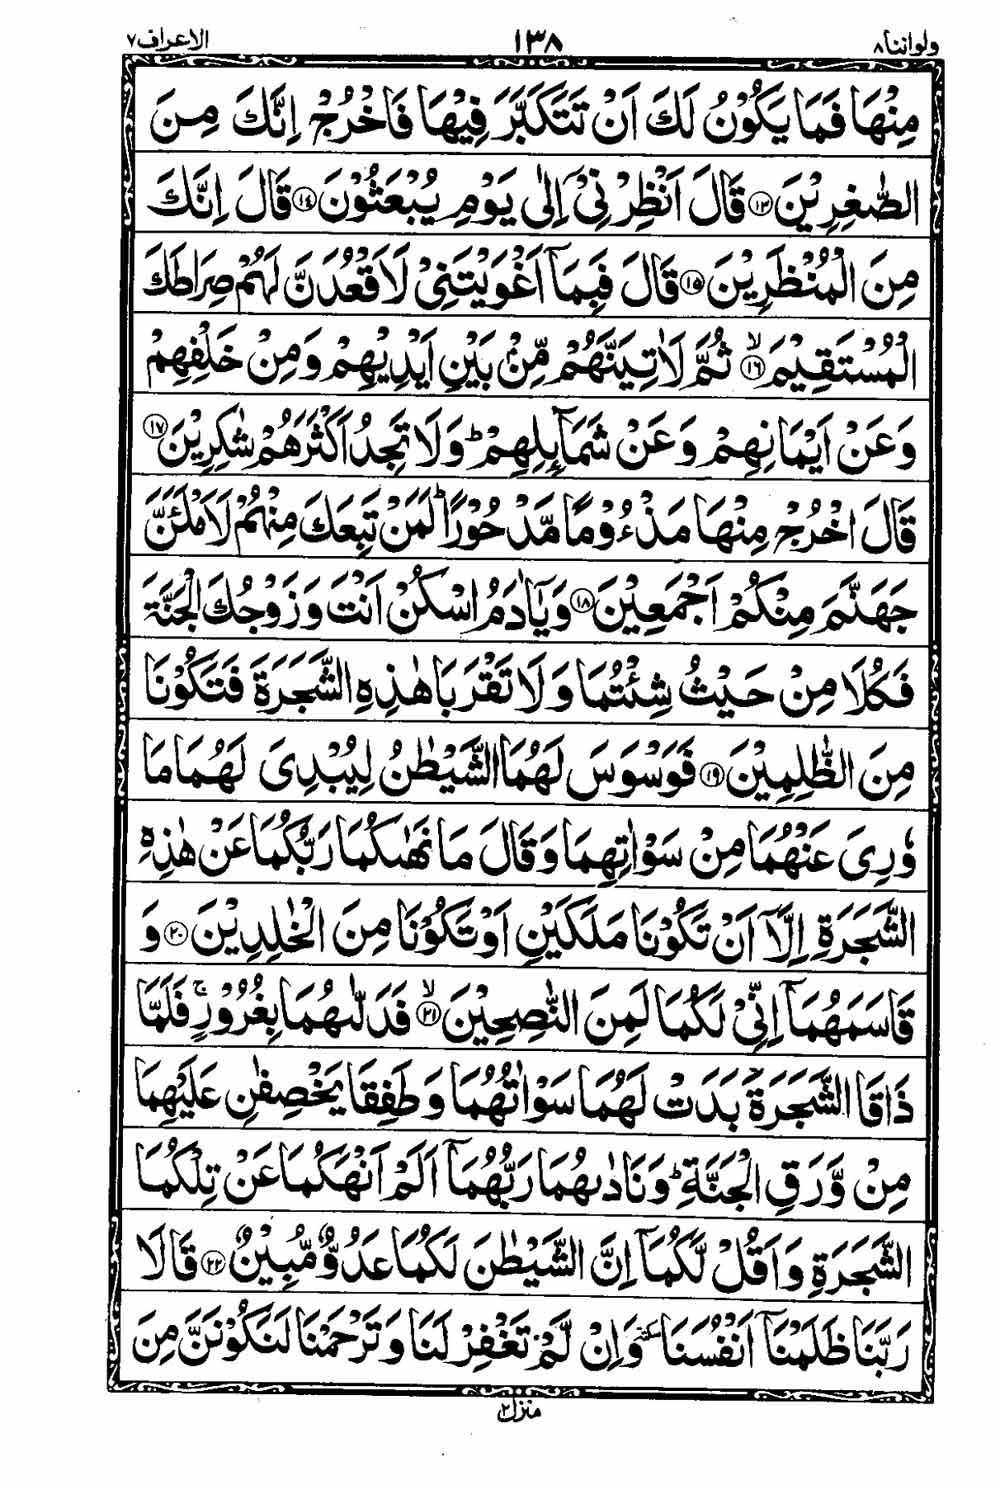 ولواننا ٨
١٣٨
الاعراف ٧
مِنْهَا فَمَا يَكُوْنُ لَكَ اَنْ تَتَكَبَّرَ فِيْهَا فَاخْرُجْ اِنَّكَ مِنَ
الصّٰغِرِيْنَ ⁝١٣ قَالَ اَنْظِرْ نِيْۤ اِلٰى يَوْمِ يُبْعَثُوْنَ ١٤ قَالَ اِنَّكَ
مِنَ الْمُنْظَرِيْنَ ١٥ قَالَ فَبِمَاۤ اَغْوَيْتَنِيْ لَاَقْعُدَنَّ لَهُمْ صِرَاطَكَ
الْمُسْتَقِيْمَ ۙ١٦ ثُمَّ لَاٰتِيَنَّهُمْ مِّنْۢ بَيْنِ اَيْدِيْهِمْ وَمِنْ خَلْفِهِمْ
وَعَنْ اَيْمَانِهِمْ وَعَنْ شَمَآئِلِهِمْ ؕ وَلَا تَجِدُ اَكْثَرَهُمْ شٰكِرِيْنَ ١٧
قَالَ اخْرُجْ مِنْهَا مَذْءُوْمًا مَّدْحُوْرًا ؕ لَمَنْ تَبِعَكَ مِنْهُمْ لَاَمْلَئَنَّ
جَهَنَّمَ مِنْكُمْ اَجْمَعِيْنَ ١٨ وَيٰۤاٰدَمُ اسْكُنْ اَنْتَ وَزَوْجُكَ الْجَنَّةَ
فَكُلَا مِنْ حَيْثُ شِئْتُمَا وَلَا تَقْرَبَا هٰذِهِ الشَّجَرَةَ فَتَكُوْنَا
مِنَ الظّٰلِمِيْنَ ١٩ فَوَسْوَسَ لَهُمَا الشَّيْطٰنُ لِيُبْدِيَ لَهُمَا مَا
وٗرِيَ عَنْهُمَا مِنْ سَوْاٰتِهِمَا وَقَالَ مَا نَهٰىكُمَا رَبُّكُمَا عَنْ هٰذِهِ
الشَّجَرَةِ اِلَّاۤ اَنْ تَكُوْنَا مَلَكَيْنِ اَوْ تَكُوْنَا مِنَ الْخٰلِدِيْنَ ٢٠ وَ
قَاسَمَهُمَاۤ اِنِّيْ لَكُمَا لَمِنَ النّٰصِحِيْنَ ۙ٢١ فَدَلّٰىهُمَا بِغُرُوْرٍ ۚ فَلَمَّا
ذَاقَا الشَّجَرَةَ بَدَتْ لَهُمَا سَوْاٰتُهُمَا وَطَفِقَا يَخْصِفٰنِ عَلَيْهِمَا
مِنْ وَّرَقِ الْجَنَّةِ ؕ وَنَادٰىهُمَا رَبُّهُمَاۤ اَلَمْ اَنْهَكُمَا عَنْ تِلْكُمَا
الشَّجَرَةِ وَاَقُلْ لَّكُمَاۤ اِنَّ الشَّيْطٰنَ لَكُمَا عَدُوٌّ مُّبِيْنٌ ٢٢ قَالَا
رَبَّنَا ظَلَمْنَاۤ اَنْفُسَنَا ٚ وَاِنْ لَّمْ تَغْفِرْ لَنَا وَتَرْحَمْنَا لَنَكُوْنَنَّ مِنَ
منزل ٢